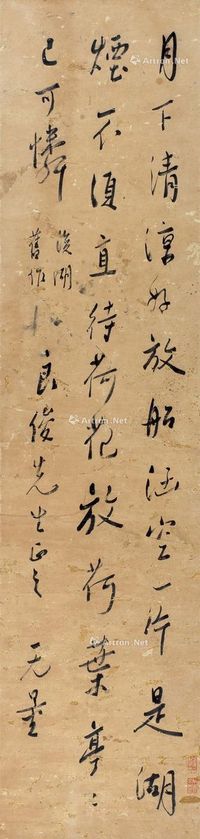 月下清涼好放船涵空一片是湖
煙不須直待荷花放荷葉亭〻
已可憐
後湖
舊作
良俊先生正之 无量
Artron.Net